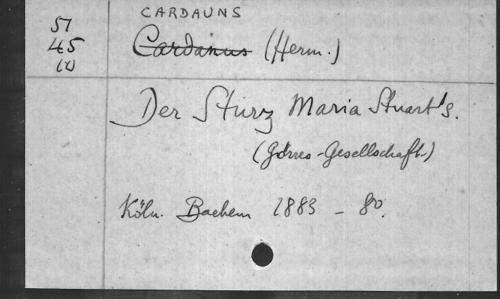 CARDAUNS
51
45
Cardanus (Herm.)
Der Sturz Maria Stuart's.
(Görres-Gesellschaft)
Köln. Bachem 1883 - 8o.